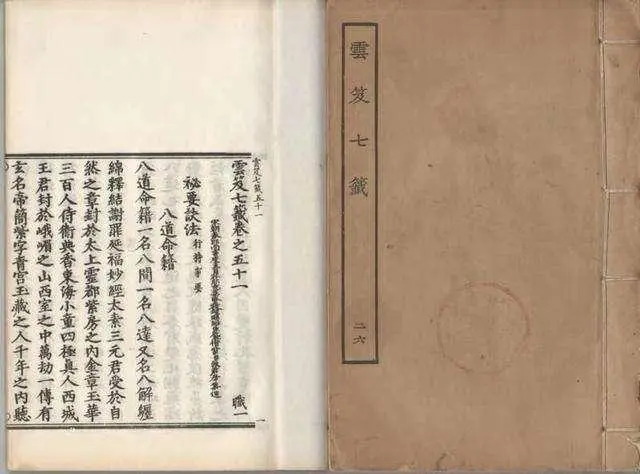 雲笈七籤
二六
雲笈七籤五十一
一
雲笈七籤卷之五十一 職一
祕要訣法 行持事要
八道命籍
八道命籍一名八間一名八達又名八解纒
綿釋結謝罪延福妙經太素三元君受於自
然之章封於太上靈都紫房之內金章玉華
三百人侍衛典香東海小童四極真人西城
王君封於峨嵋之山西室之中萬劫一傳有
玄名帝簡紫字青宮玉藏之人千年之內聽